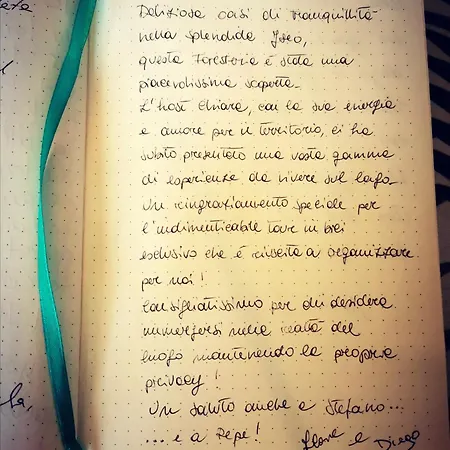 Deliziosa oasi di tranquillità
nella splendida Iseo,
questa Foresteria è stata una
piacevolissima scoperta.
L'host Chiara, con la sua energia
e amore per il territorio, ci ha
subito presentato una vasta gamma
di esperienze da vivere sul lago.
Un ringraziamento speciale per
l'indimenticabile tour in bici
esclusivo che è riuscita a organizzare
per noi!
Consigliatissimo per chi desidera
immergersi nella realtà del
luogo mantenendo la propria
privacy!
Un saluto anche a Stefano...
... e a Pepe!
e Diego
la,